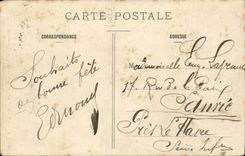 CARTE POSTALE
CORRESPONDANCE
ADRESSE
Souhaits
de bonne fête
Edmond
Mademoiselle
17 Rue de la Paix
Sanvic
Près le Havre
Seine Infre